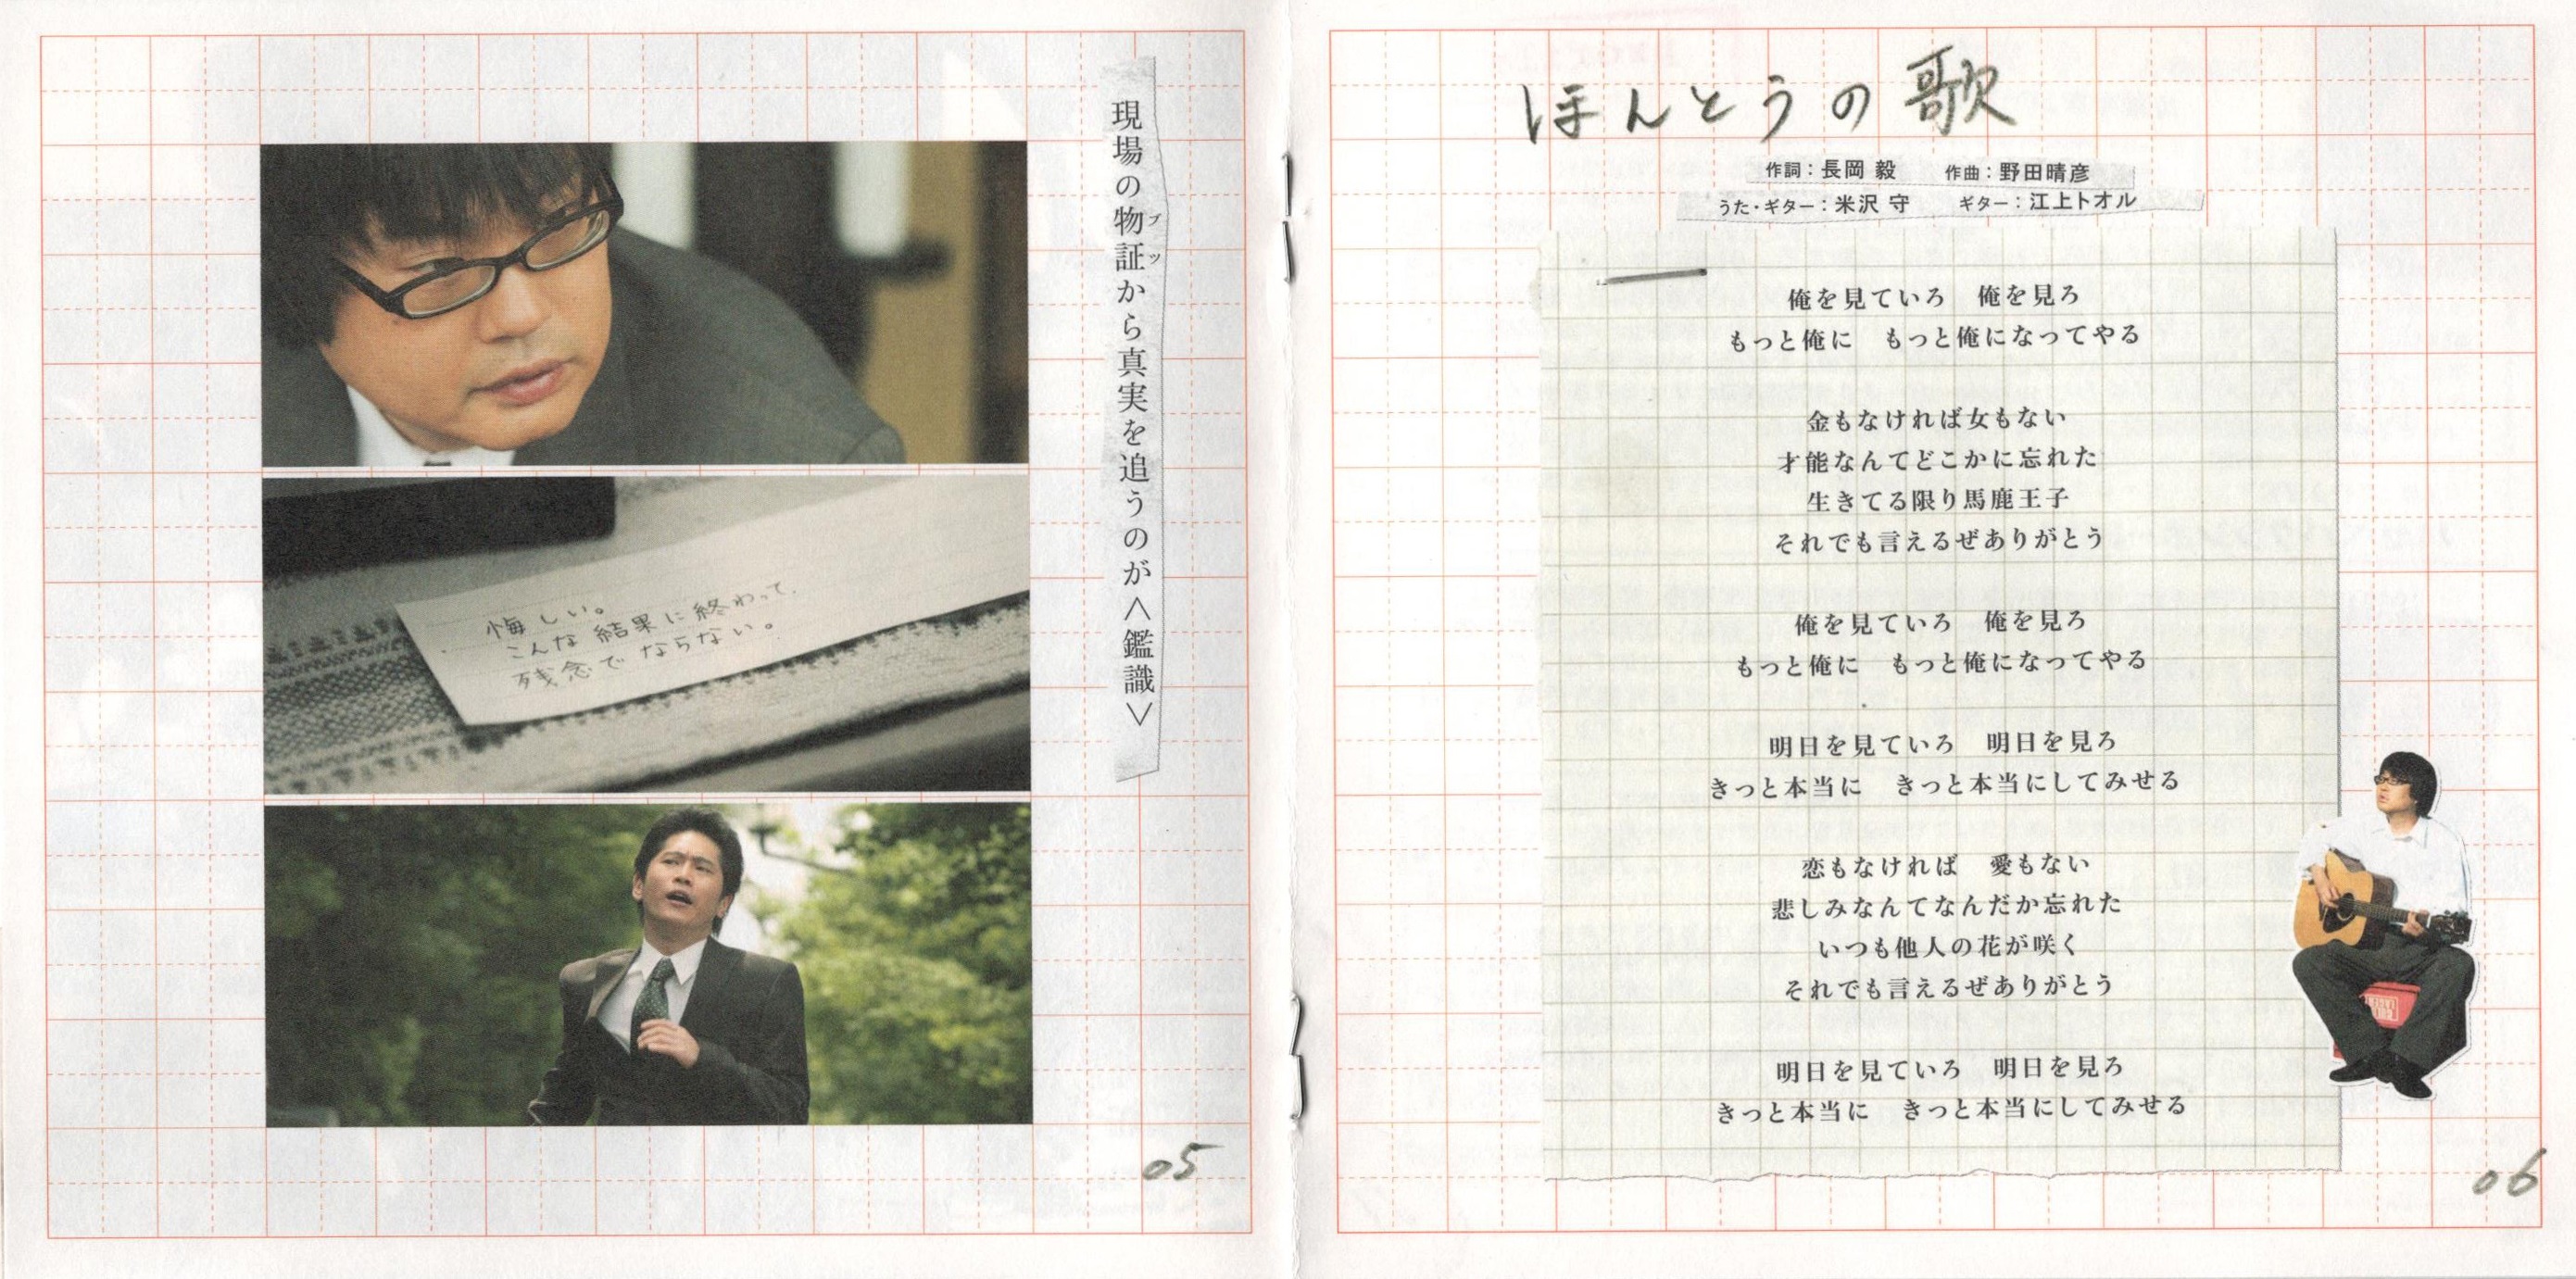 現場の物証から真実を追うのが<鑑識>
ブツ
悔しい。
こんな結果に終わって、
残念でならない。
05
ほんとうの歌
作詞：長岡 毅　作曲：野田晴彦
うた・ギター：米沢 守　ギター：江上トオル
俺を見ていろ　俺を見ろ
もっと俺に　もっと俺になってやる
金もなければ女もない
才能なんてどこかに忘れた
生きてる限り馬鹿王子
それでも言えるぜありがとう
俺を見ていろ　俺を見ろ
もっと俺に　もっと俺になってやる
明日を見ていろ　明日を見ろ
きっと本当に　きっと本当にしてみせる
恋もなければ　愛もない
悲しみなんてなんだか忘れた
いつも他人の花が咲く
それでも言えるぜありがとう
明日を見ていろ　明日を見ろ
きっと本当に　きっと本当にしてみせる
06